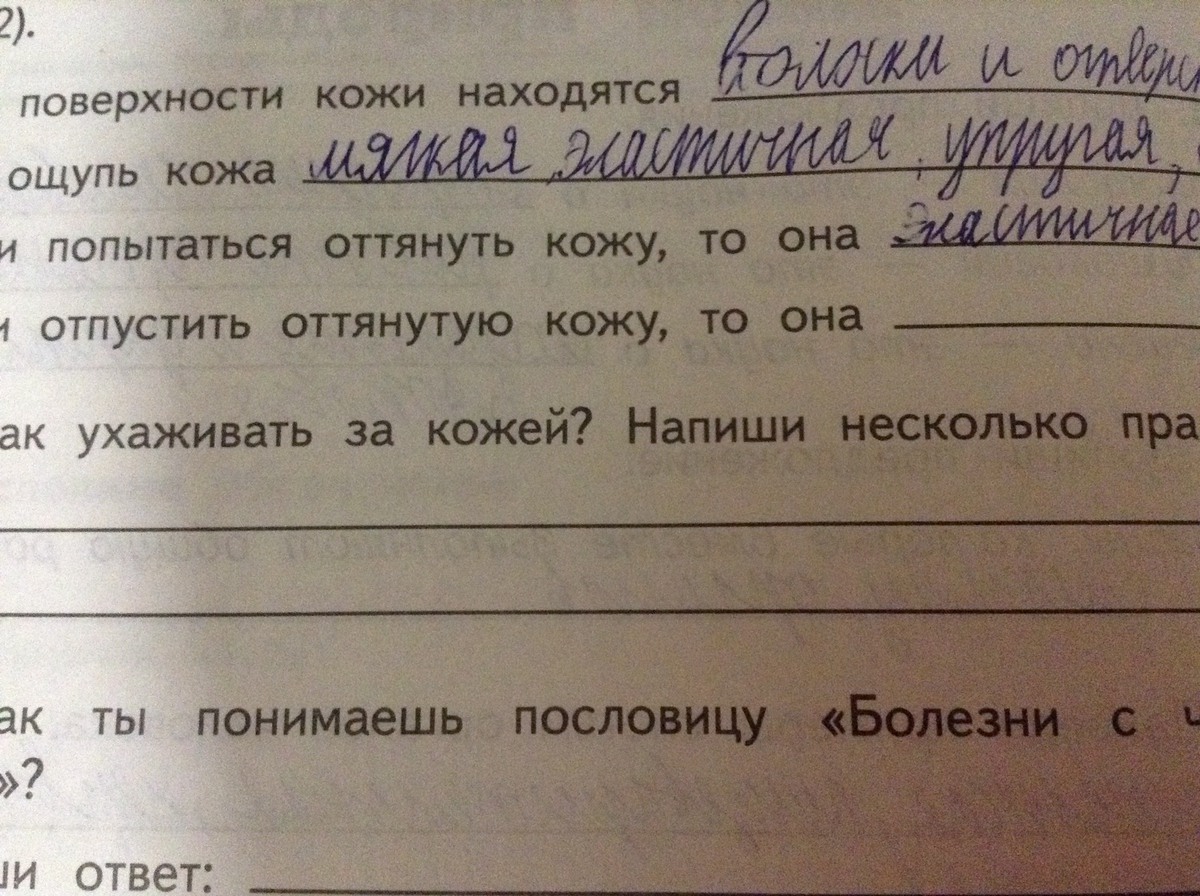 2).
поверхности кожи находятся волоски и отверс
ощупь кожа мягкая, эластичная, упругая,
и попытаться оттянуть кожу, то она эластичная
и отпустить оттянутую кожу, то она
ак ухаживать за кожей? Напиши несколько пра
ак ты понимаешь пословицу «Болезни с ч
»?
ши ответ: